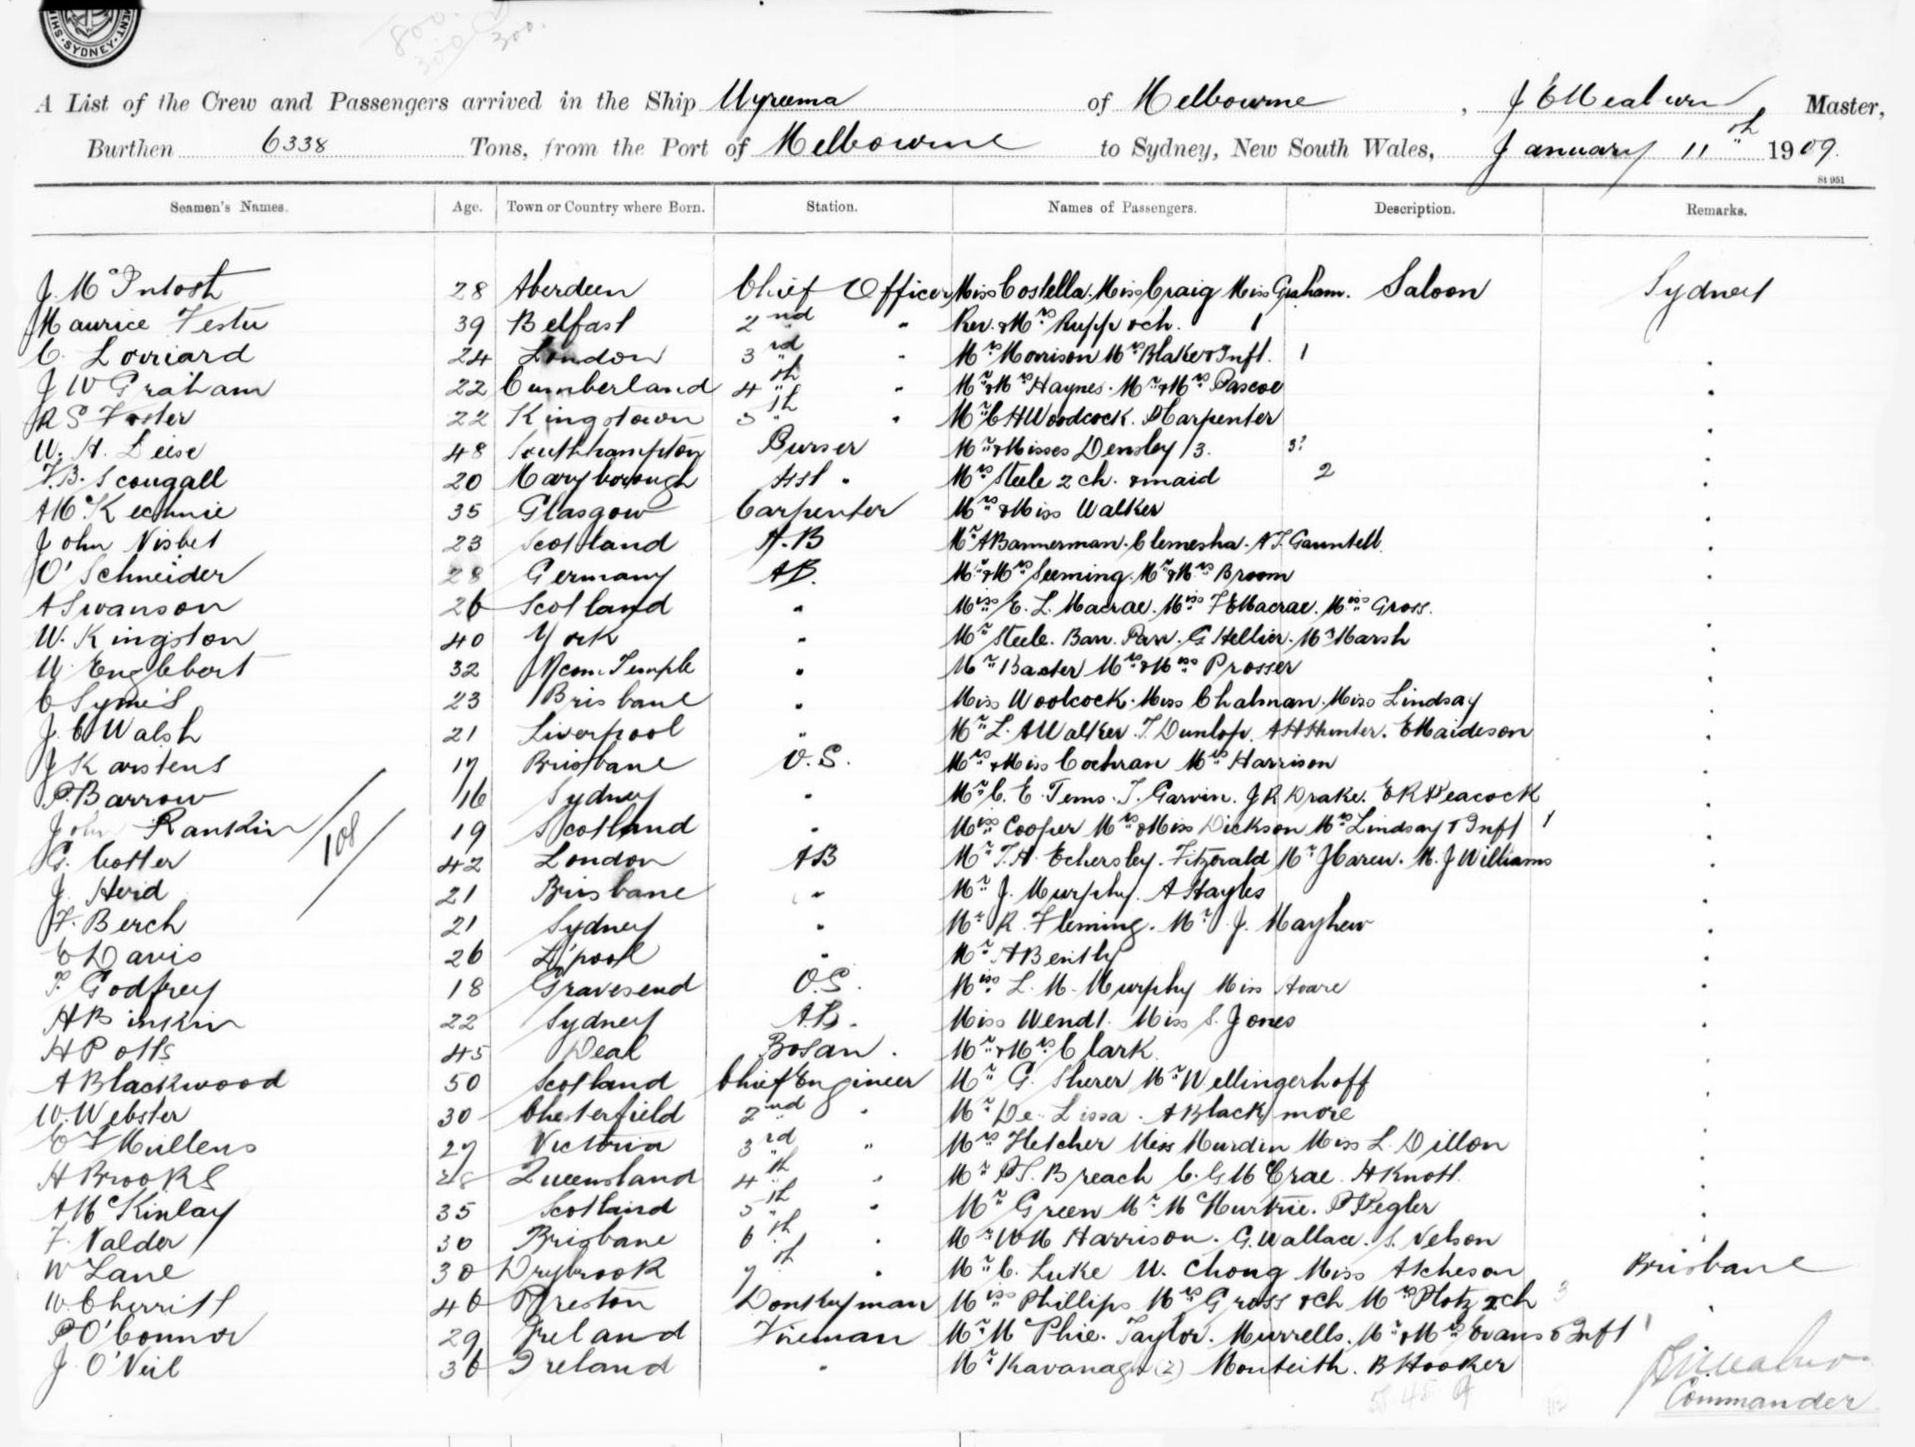 SYDNEY
800.
300.
A List of the Crew and Passengers arrived in the Ship Wyreema of Melbourne, J E Meaburn Master,
Burthen 6338 Tons, from the Port of Melbourne to Sydney, New South Wales, January 11th 1909.
St 951
Seamen's Names. Age. Town or Country where Born. Station. Names of Passengers. Description. Remarks.
J. McIntosh 28 Aberdeen Chief Officer Miss Costella. Miss Craig Miss Graham. Saloon Sydney
Maurice 39 Belfast 2nd " Rev. & Mrs Rupp & ch. 1
C. Lorriard 24 London 3rd " Mrs Morrison Mrs Blake & Inft. 1 "
J W Graham 22 Cumberland 4th " Mr & Mrs Haynes. Mr & Mrs Pascoe "
R S Foster 22 Kingstown 5th " Mr C H Woodcock. Carpenter "
W. H. 48 Southhampton Purser Mr & Misses Densley 3. 3? "
F. B. Scougall 20 Maryborough Asst " Mrs Steele 2 ch. & maid 2 "
A McKechnie 35 Glasgow Carpenter Mrs & Miss Walker "
John Nisbet 23 Scotland A.B Mr A Bannerman. Clemesha. A J. Gauntell "
O' Schneider 28 Germany AB. Mr & Mrs Seeming. Mr & Mrs Broom "
A Swanson 26 Scotland " Miss E. L. Macrae. Miss F E Macrae. Miss Gross. "
W. Kingston 40 York " Mr Steele. Parr. G Hellier. Marsh "
W Englebert 32 Temple " Mr Baxter Mrs & Miss Prosser "
C Symes 23 Brisbane " Miss Woolcock. Miss Chalman. Miss Lindsay "
J. C Walsh 21 Liverpool " Mr L. A Walker. J. Dunlop. A H Hunter. E Maideson "
J Karstens 17 Brisbane O.S. Mrs & Miss Cochran Mrs Harrison "
P. Barrow 16 Sydney " Mr C. E. Tems. J. Garvin. J R Drake. E R Peacock "
John Rankin 19 Scotland " Miss Cooper Mrs & Miss Dickson Mrs Lindsay & Inft 1 "
108
G. Cotter 42 London AB Mr J. H. Eckersley. Fitzgerald Mr J Carew. M. J Williams "
J. Herd 21 Brisbane " Mr J. Murphy. A Hayles "
F. Berch 21 Sydney " Mr R. Fleming. Mr J. Mayhew "
E Davis 26 L'pool " Mr A Bently "
F. Godfrey 18 Gravesend O.S. Miss L. M. Murphy Miss Hoare "
H 22 Sydney A.B. Miss Wendt. Miss S. Jones "
H Potts 45 Deal Bosan. Mr & Mrs Clark "
A Blackwood 50 Scotland Chief Engineer Mr G. Sherer Mr Wellingerhoff "
W. Webster 30 Chesterfield 2nd " Mr De Lissa. A Blackmore "
E F Mullens 27 Victoria 3rd " Mrs Fletcher Miss Murdin Miss L. Dillon "
H Brooks 28 Queensland 4th " Mr P S. Breach C. G McCrae. H Knott. "
A McKinlay 35 Scotland 5th " Mr Green Mr McMurtrie. P Pegler "
F. Nalder 30 Brisbane 6th " Mr W M Harrison. G. Wallace. S. Nelson "
W Lane 30 Drybrook 7th " Mr C. Luke W. Chong Miss Atcheson Brisbane
W. Cherritt 40 Preston Donkeyman Miss Phillips Mrs Gross & ch Mrs Plotz 2 ch 3 "
P O'Connor 29 Ireland Fireman Mr McPhie. Taylor. Murrells. Mr & Mrs Evans & Inft 1
J. O'Neil 36 Ireland " Mr Kavanagh (2) Monteith. B Hooker
Commander